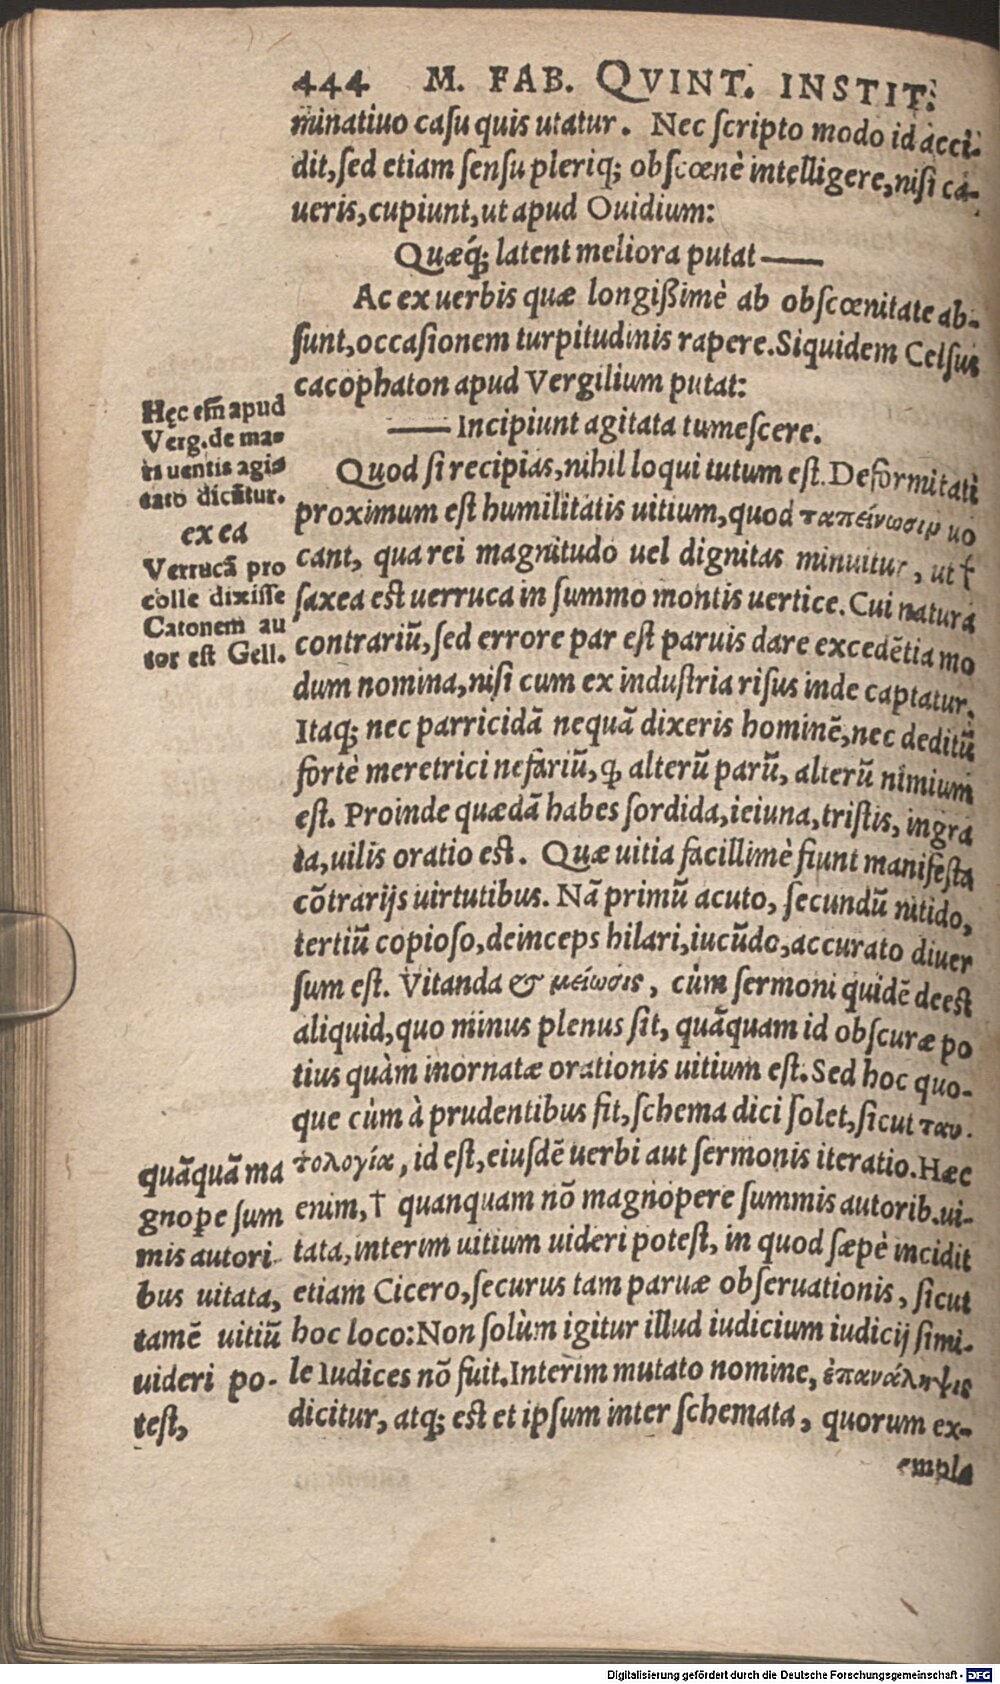 444 M. FAB. QVINT. INSTIT.
minatiuo casu quis utatur. Nec scripto modo id acci-
dit, sed etiam sensu pleriq; obscœnè intelligere, nisi ca-
ueris, cupiunt, ut apud Ouidium:
Quæq́; latent meliora putat ——
Ac ex uerbis quæ longißimè ab obscœnitate ab-
sunt, occasionem turpitudinis rapere. Siquidem Celsus
cacophaton apud Vergilium putat:
—— Incipiunt agitata tumescere.
Quod si recipias, nihil loqui tutum est. Deformitati
proximum est humilitatis uitium, quod ταπείνωσιρ uo
cant, qua rei magnitudo uel dignitas minuitur, ut †
saxea est uerruca in summo montis uertice. Cui natura
contrariũ, sed errore par est paruis dare excedẽtia mo
dum nomina, nisi cum ex industria risus inde captatur.
Itaq; nec parricidã nequã dixeris hominẽ, nec deditũ
fortè meretrici nefariũ, q̃ alterũ parũ, alterũ nimium
est. Proinde quædã habes sordida, ieiuna, tristis, ingra
ta, uilis oratio est. Quæ uitia facillimè fiunt manifesta
cõtrarijs uirtutibus. Nã primũ acuto, secundũ nitido,
tertiũ copioso, deinceps hilari, iucũdo, accurato diuer
sum est. Vitanda & μείωσις, cùm sermoni quidẽ deest
aliquid, quo minus plenus sit, quãquam id obscuræ po
tius quàm inornatæ orationis uitium est. Sed hoc quo-
que cùm à prudentibus fit, schema dici solet, sicut ταυ-
τολογία, id est, eiusdẽ uerbi aut sermonis iteratio. Hæc
enim, † quanquam nõ magnopere summis autorib. ui-
tata, interim uitium uideri potest, in quod sæpè incidit
etiam Cicero, securus tam paruæ obseruationis, sicut
hoc loco: Non solùm igitur illud iudicium iudicij simi-
le Iudices nõ fuit. Interim mutato nomine, ἐπανάληψις
dicitur, atq; est et ipsum inter schemata, quorum ex-
empla
Hęc em̃ apud
Verg. de ma-
ri uentis agi-
tato dicũtur.
ex ea
Verrucã pro
colle dixisse
Catonem au
tor est Gell.
quãquã ma
gnope sum
mis autori-
bus uitata,
tamẽ uitiũ
uideri po-
test,
Digitalisierung gefördert durch die Deutsche Forschungsgemeinschaft - DFG